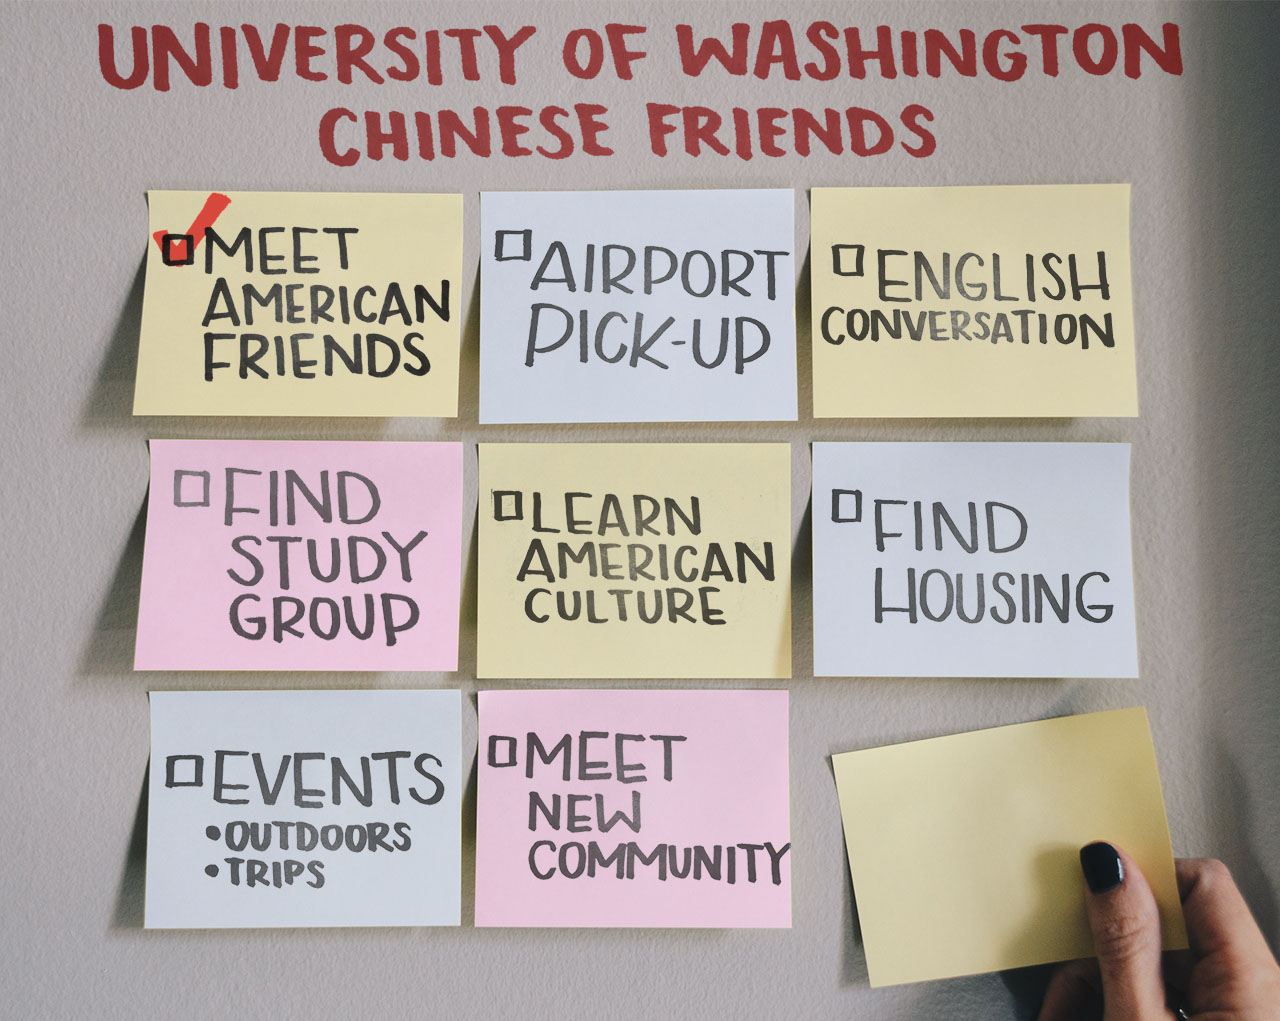 UNIVERSITY OF WASHINGTON
CHINESE FRIENDS
MEET
AMERICAN
FRIENDS
AIRPORT
PICK-UP
ENGLISH
CONVERSATION
FIND
STUDY
GROUP
LEARN
AMERICAN
CULTURE
FIND
HOUSING
EVENTS
•OUTDOORS
•TRIPS
MEET
NEW
COMMUNITY